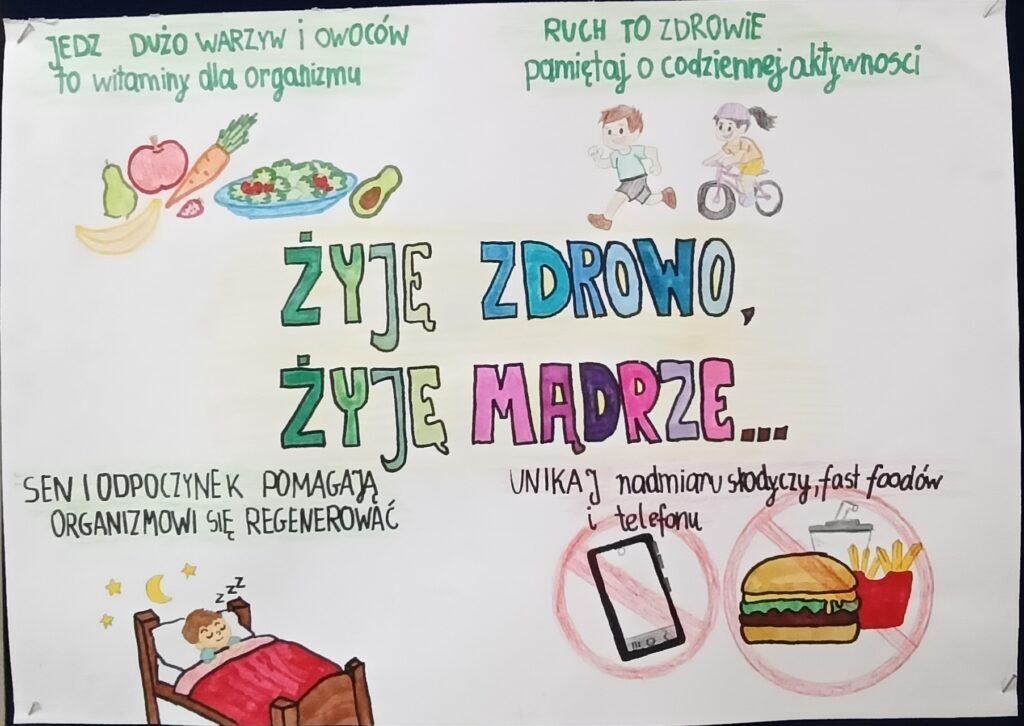 JEDZ DUŻO WARZYW i OWOCÓW
to witaminy dla organizmu
RUCH TO ZDROWIE
pamiętaj o codziennej aktywnosci
ŻYJĘ ZDROWO,
ŻYJĘ MĄDRZE...
SEN I ODPOCZYNEK POMAGAJĄ
ORGANIZMOWI SIĘ REGENEROWAĆ
UNIKAJ nadmiaru słodyczy, fast foodów
i telefonu
zzZ